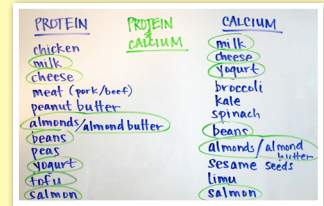 PROTEIN
chicken
milk
cheese
meat (pork/beef)
peanut butter
almonds/almond butter
beans
peas
yogurt
tofu
salmon
PROTEIN
&
CALCIUM
CALCIUM
milk
cheese
yogurt
broccoli
kale
spinach
beans
almonds/almond
butter
sesame seeds
limu
salmon